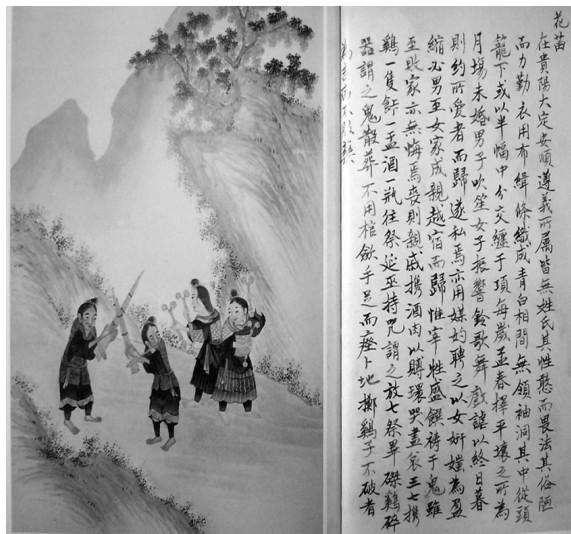 花苗
在貴陽大定安順遵義所屬皆無姓氏其性憨而畏法其俗陋
而力勤衣用布緝條織成青白相間無領袖洞其中從頭
籠下或以半幅中分交纏于項每歲孟春擇平壤之所為
月場未婚男子吹笙女子振響鈴歌舞戲謔以終日暮
則約所愛者而歸遂私焉亦用媒妁聘之以女妍媸為盈
縮必男至女家成親越宿而歸惟宰牲盛饌祷于鬼雖
至敗家亦無悔焉喪則親戚携酒肉以賻環哭盡哀三七携
鷄一隻飰一盂酒一瓶往祭延巫持咒謂之放七祭畢磔鷄碎
器謂之鬼散葬不用棺斂手足而瘞卜地擲鷄子不破者
為吉病不服藥